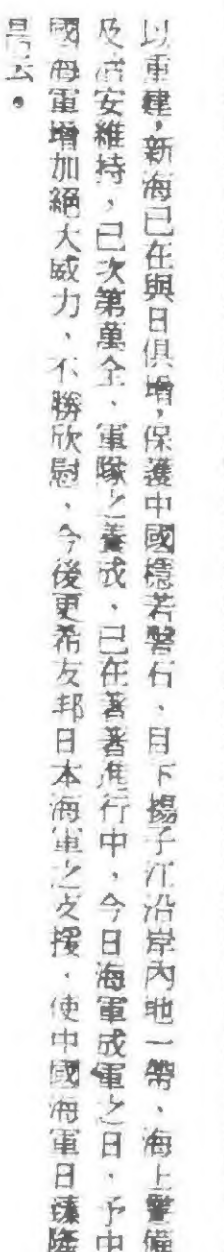 以重建，新海已在與日俱增，保護中國穩若磐石、目下揚子江沿岸內地一帶、海上警備
及治安維持，已次第萬全、軍隊之養成、已在着着進行中，今日海軍成軍之日，予中
國海軍增加絕大威力、不勝欣慰、今後更希友邦日本海軍之支援，使中國海軍日臻隆
昌云。